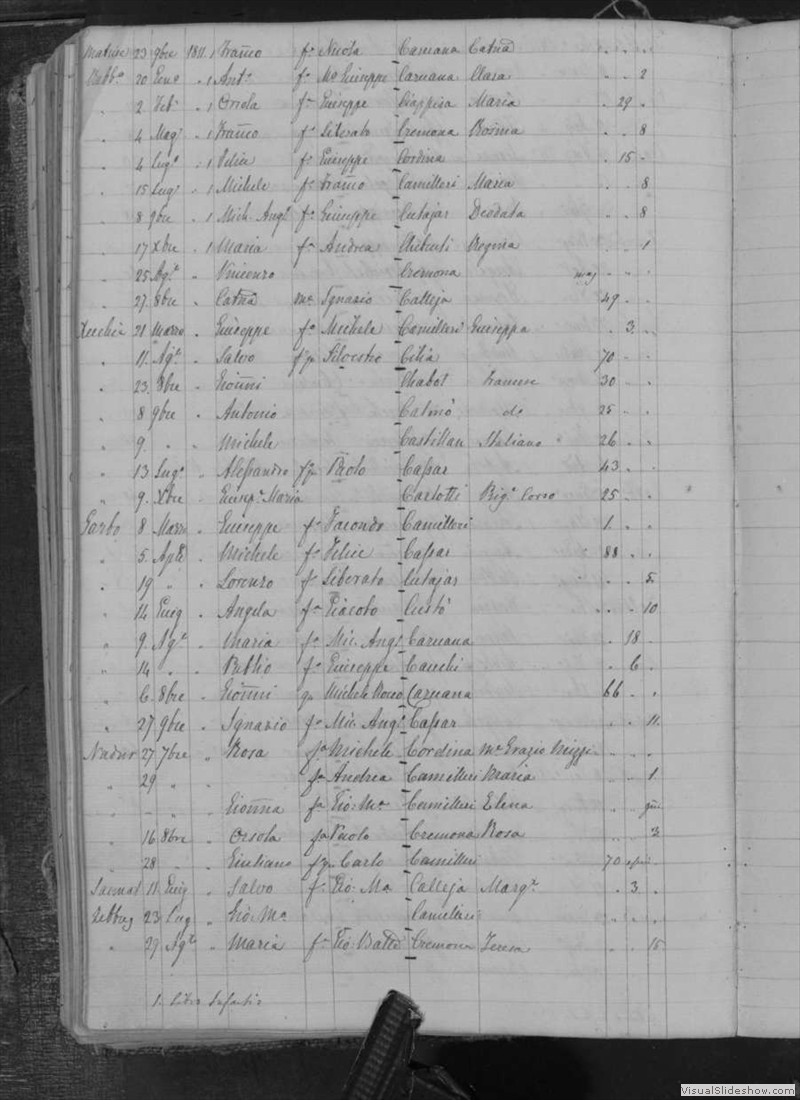 Matrice 23 9bre 1811 Franco fo Nicola Camana Catna
20 Gen. Anto fo Mo Giuseppe Caruana Clara 2
2 Feb. Orsola fa Giuseppe Maria 29
4 Mag. Franco fo Liberato Cremona Rosina 8
4 Lugo Felice fo Giuseppe Cordina 15
15 Lug Michele fo Franco Camilleri Maria 8
8 9bre Mich. Ango fo Giuseppe Cutajar Deodata 8
17 Xbre Maria fa Andrea Regina 1
25 Ago Vincenzo Cremona mag
27 8bre Catna Ignazio Calleja 49
Xeuchia 21 Marzo Giuseppe fo Michele Camilleri Giuseppa 3
11 Ago Salvo Silvestro Cilia 70
23 8bre Gionni Chabot 30
8 9bre Antonio do 25
9 " " Michele Castillan Italiano 26
13 Lugo Alessandro Paolo Cassar 43
9 Xbre Giusp. Maria Carlotti Corso 25
Garbo 8 Marzo Giuseppe fo Camilleri 1
5 Aple Michele fo Felice Cassar 88
19 " Lorenzo fo Liberato Cutajar 5
14 Giug Angela fa Giacobo Custò 10
9 Ago Maria fa Mic. Ango Caruana 18
14 " Publio fo Giuseppe Cauchi 6
6 8bre Gionni Michele Caruana 66
27 9bre Ignazio fo Mic. Ango Cassar 11
Nadur 27 7bre Rosa fa Michele Cordina Grazio
29 " fa Andrea Camilleri Maria 1
Gionna fa Gio: Ma Camilleri Elena
16 8bre Orsola fa Paolo Cremona Rosa 3
28 " Giuliano Carlo Camilleri 70
11 Giug Salvo fo Gio: Ma Calleja Marga 3
Zebbug 23 Lug Gio: Ma Camilleri
29 Ago Maria fa Gio: Batta Cremona Teresa 15
VisualSlideshow.com